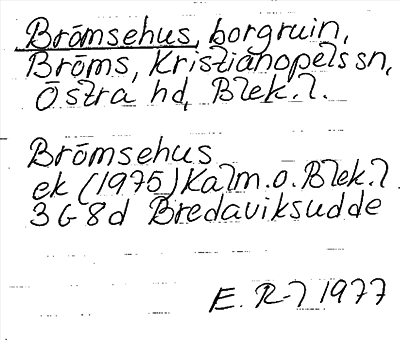 Brömsehus, borgruin,
Bröms, Kristianopels sn,
Östra hd, Blek. l.
Brömsehus
ek (1975) Kalm. o. Blek. l.
3 G 8 d Bredaviksudde
E. R-7 1977